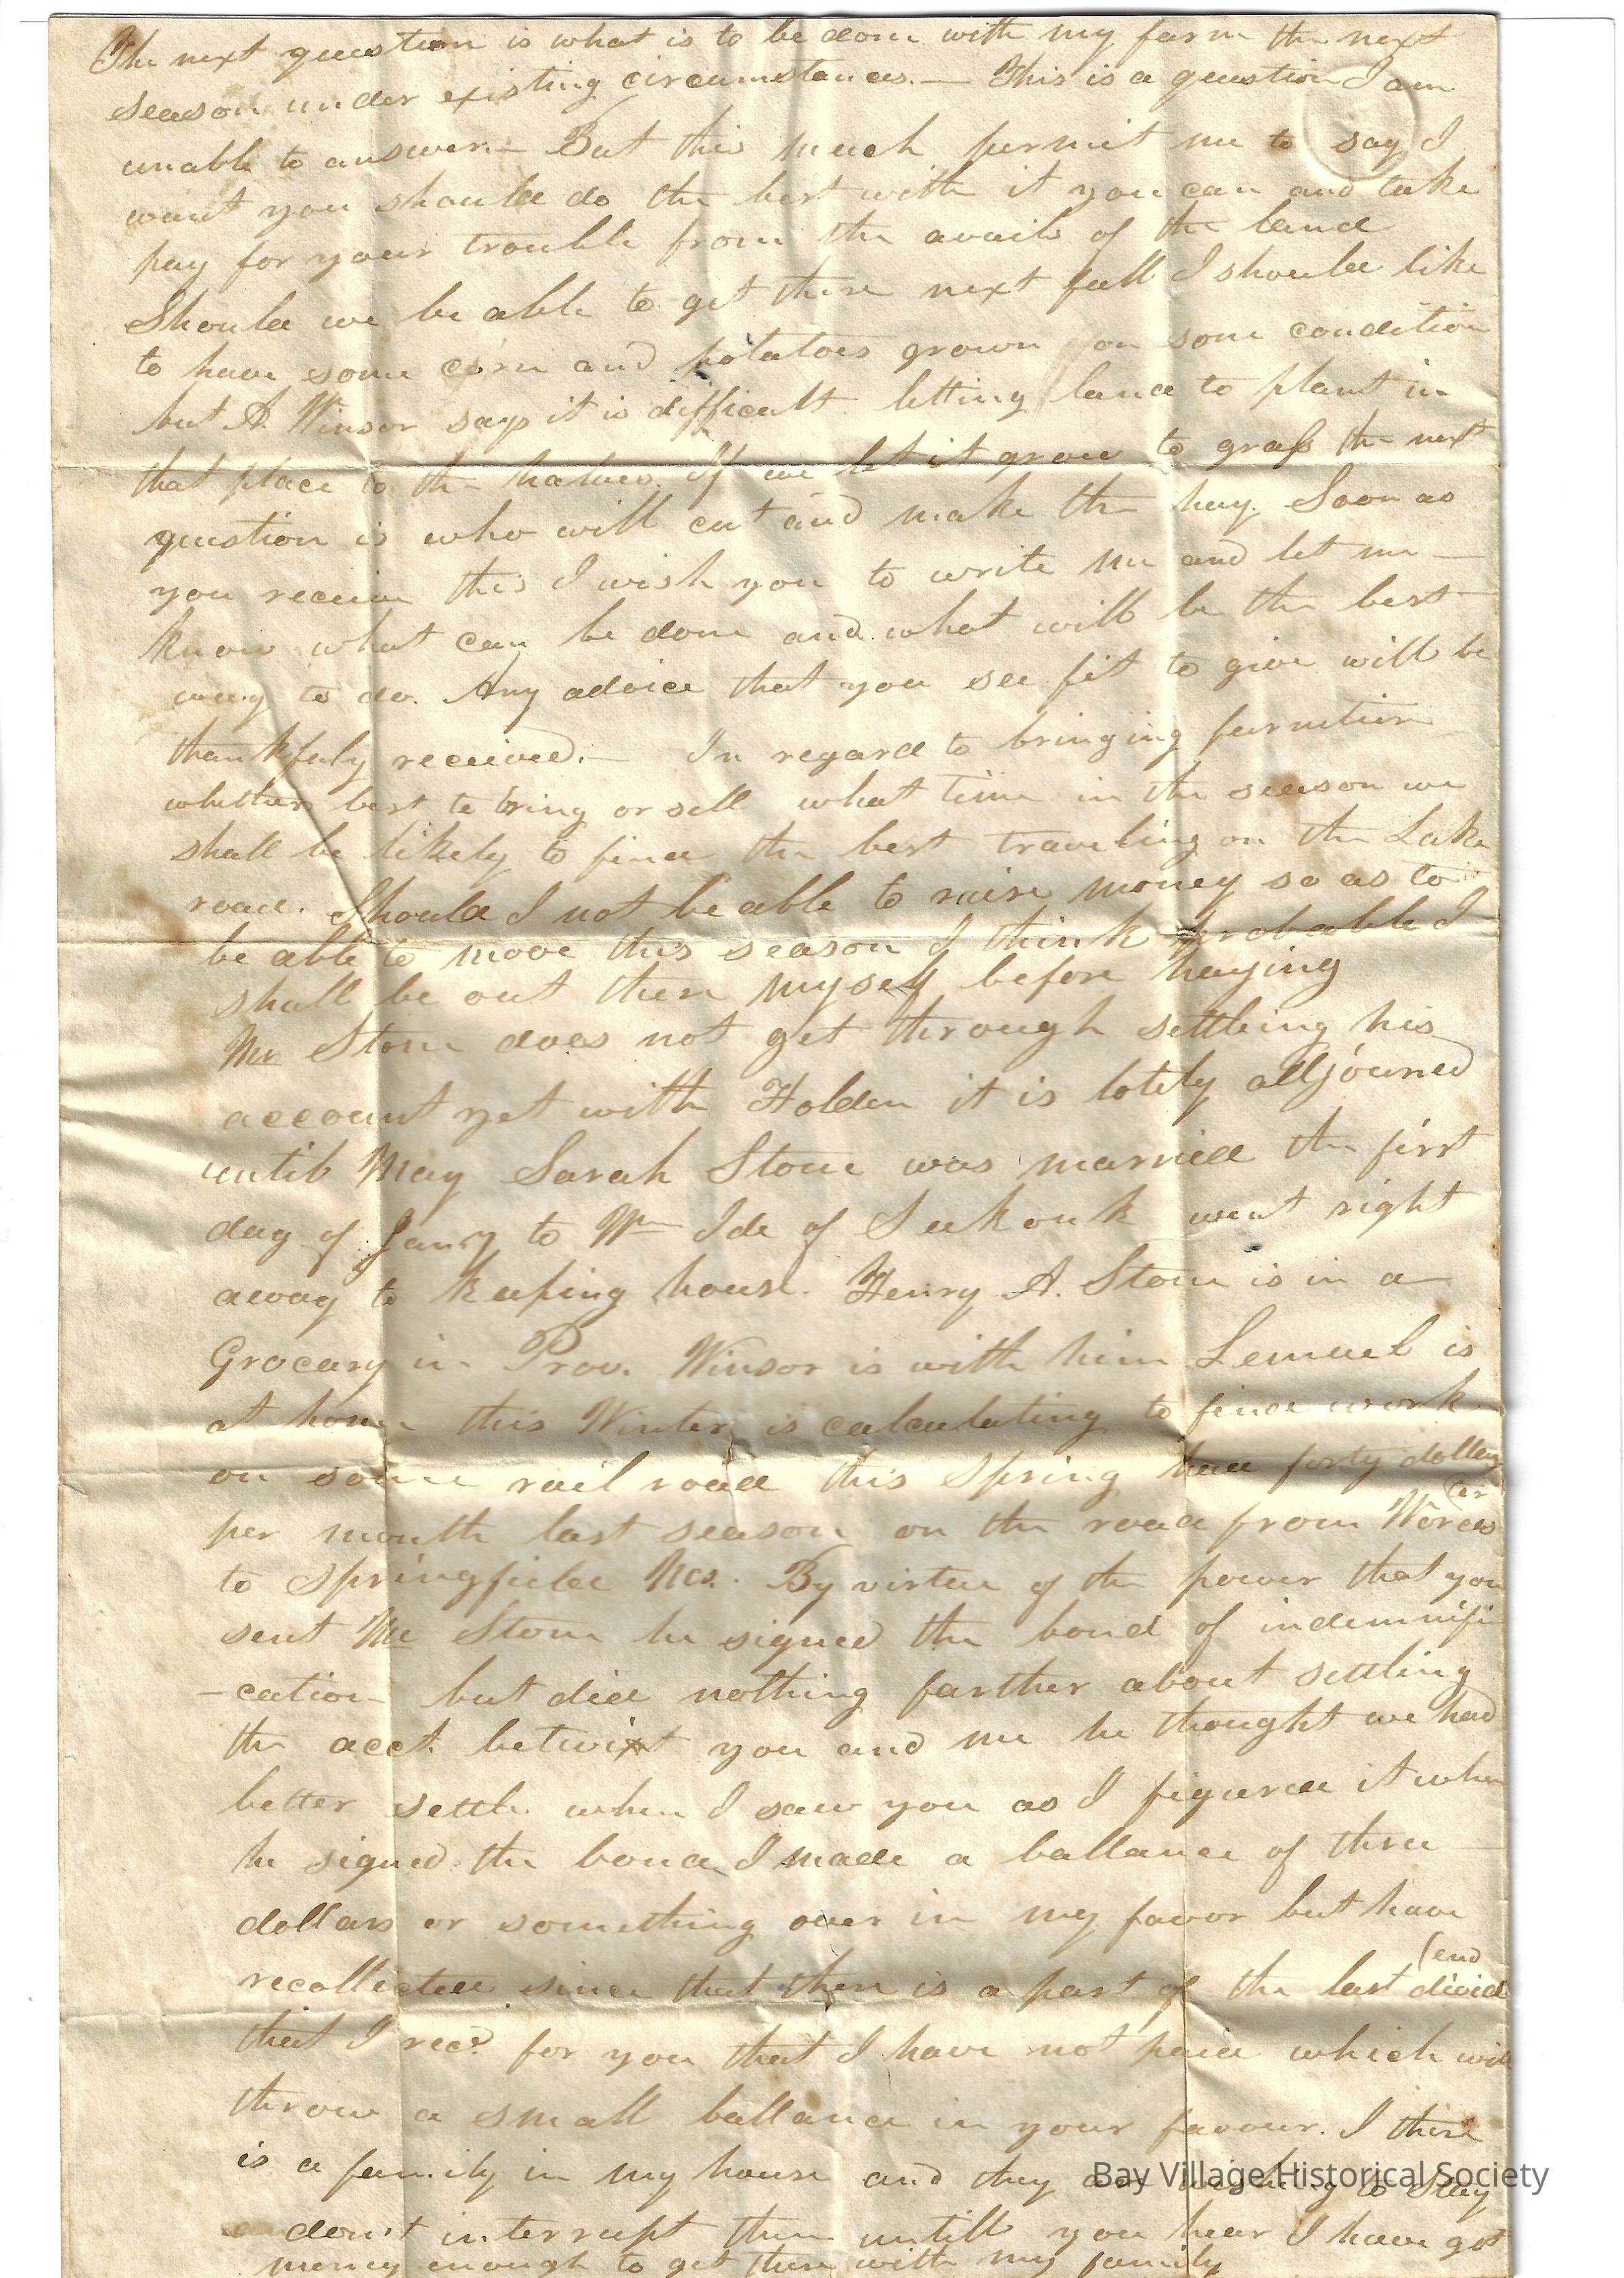 The next question is what is to be done with my farm the next
season under existing circumstances.— This is a question I am
unable to answer.— But this much permit me to say I
want you should do the best with it you can and take
pay for your trouble from the avails of the land
Should we be able to get there next fall I should like
to have some corn and potatoes grown on some condition
but A. Winsor says it is difficult letting land to plant in
that place to the halves. If we let it grow to grass the next
question is who will cut and make the hay. Soon as
you receive this I wish you to write me and let me—
know what can be done and what will be the best
way to do. Any advice that you see fit to give will be
thankfuly received.— In regard to bringing furniture
whether best to bring or sell what time in the season we
shall be likely to find the best traveling on the Lake
road. Should I not be able to raise money so as to
be able to move this season I think probable I
shall be out there myself before haying
Mr Stone does not get through settleing his
account yet with Holden it is lately alljourned
until May Sarah Stone was married the first
day of Jany to Wm Ide of Seekonk went right
away to keeping house. Henry A. Stone is in a
Grocary in Prov. Winsor is with him Lemuel is
at home this Winter is calculating to find work
on some rail road this Spring had forty dollars
per month last season on the road from Worces(ter
to Springfield Ms. By virtue of the power that you
sent Mr Stone he signed the bond of indemnifi
-cation but did nothing farther about settling
the acct. betwixt you and me he thought we had
better settle when I saw you as I figured it when
he signed the bond I made a ballance of three
dollars or something over in my favor but have
recollected since that there is a part of the last divid(end
that I recd for you that I have not paid which will
throw a small ballance in your favour. I there
is a family in my house and they are wishing to stay
don't interrupt them untill you hear I have got
money enough to get there with my family
Bay Village Historical Society